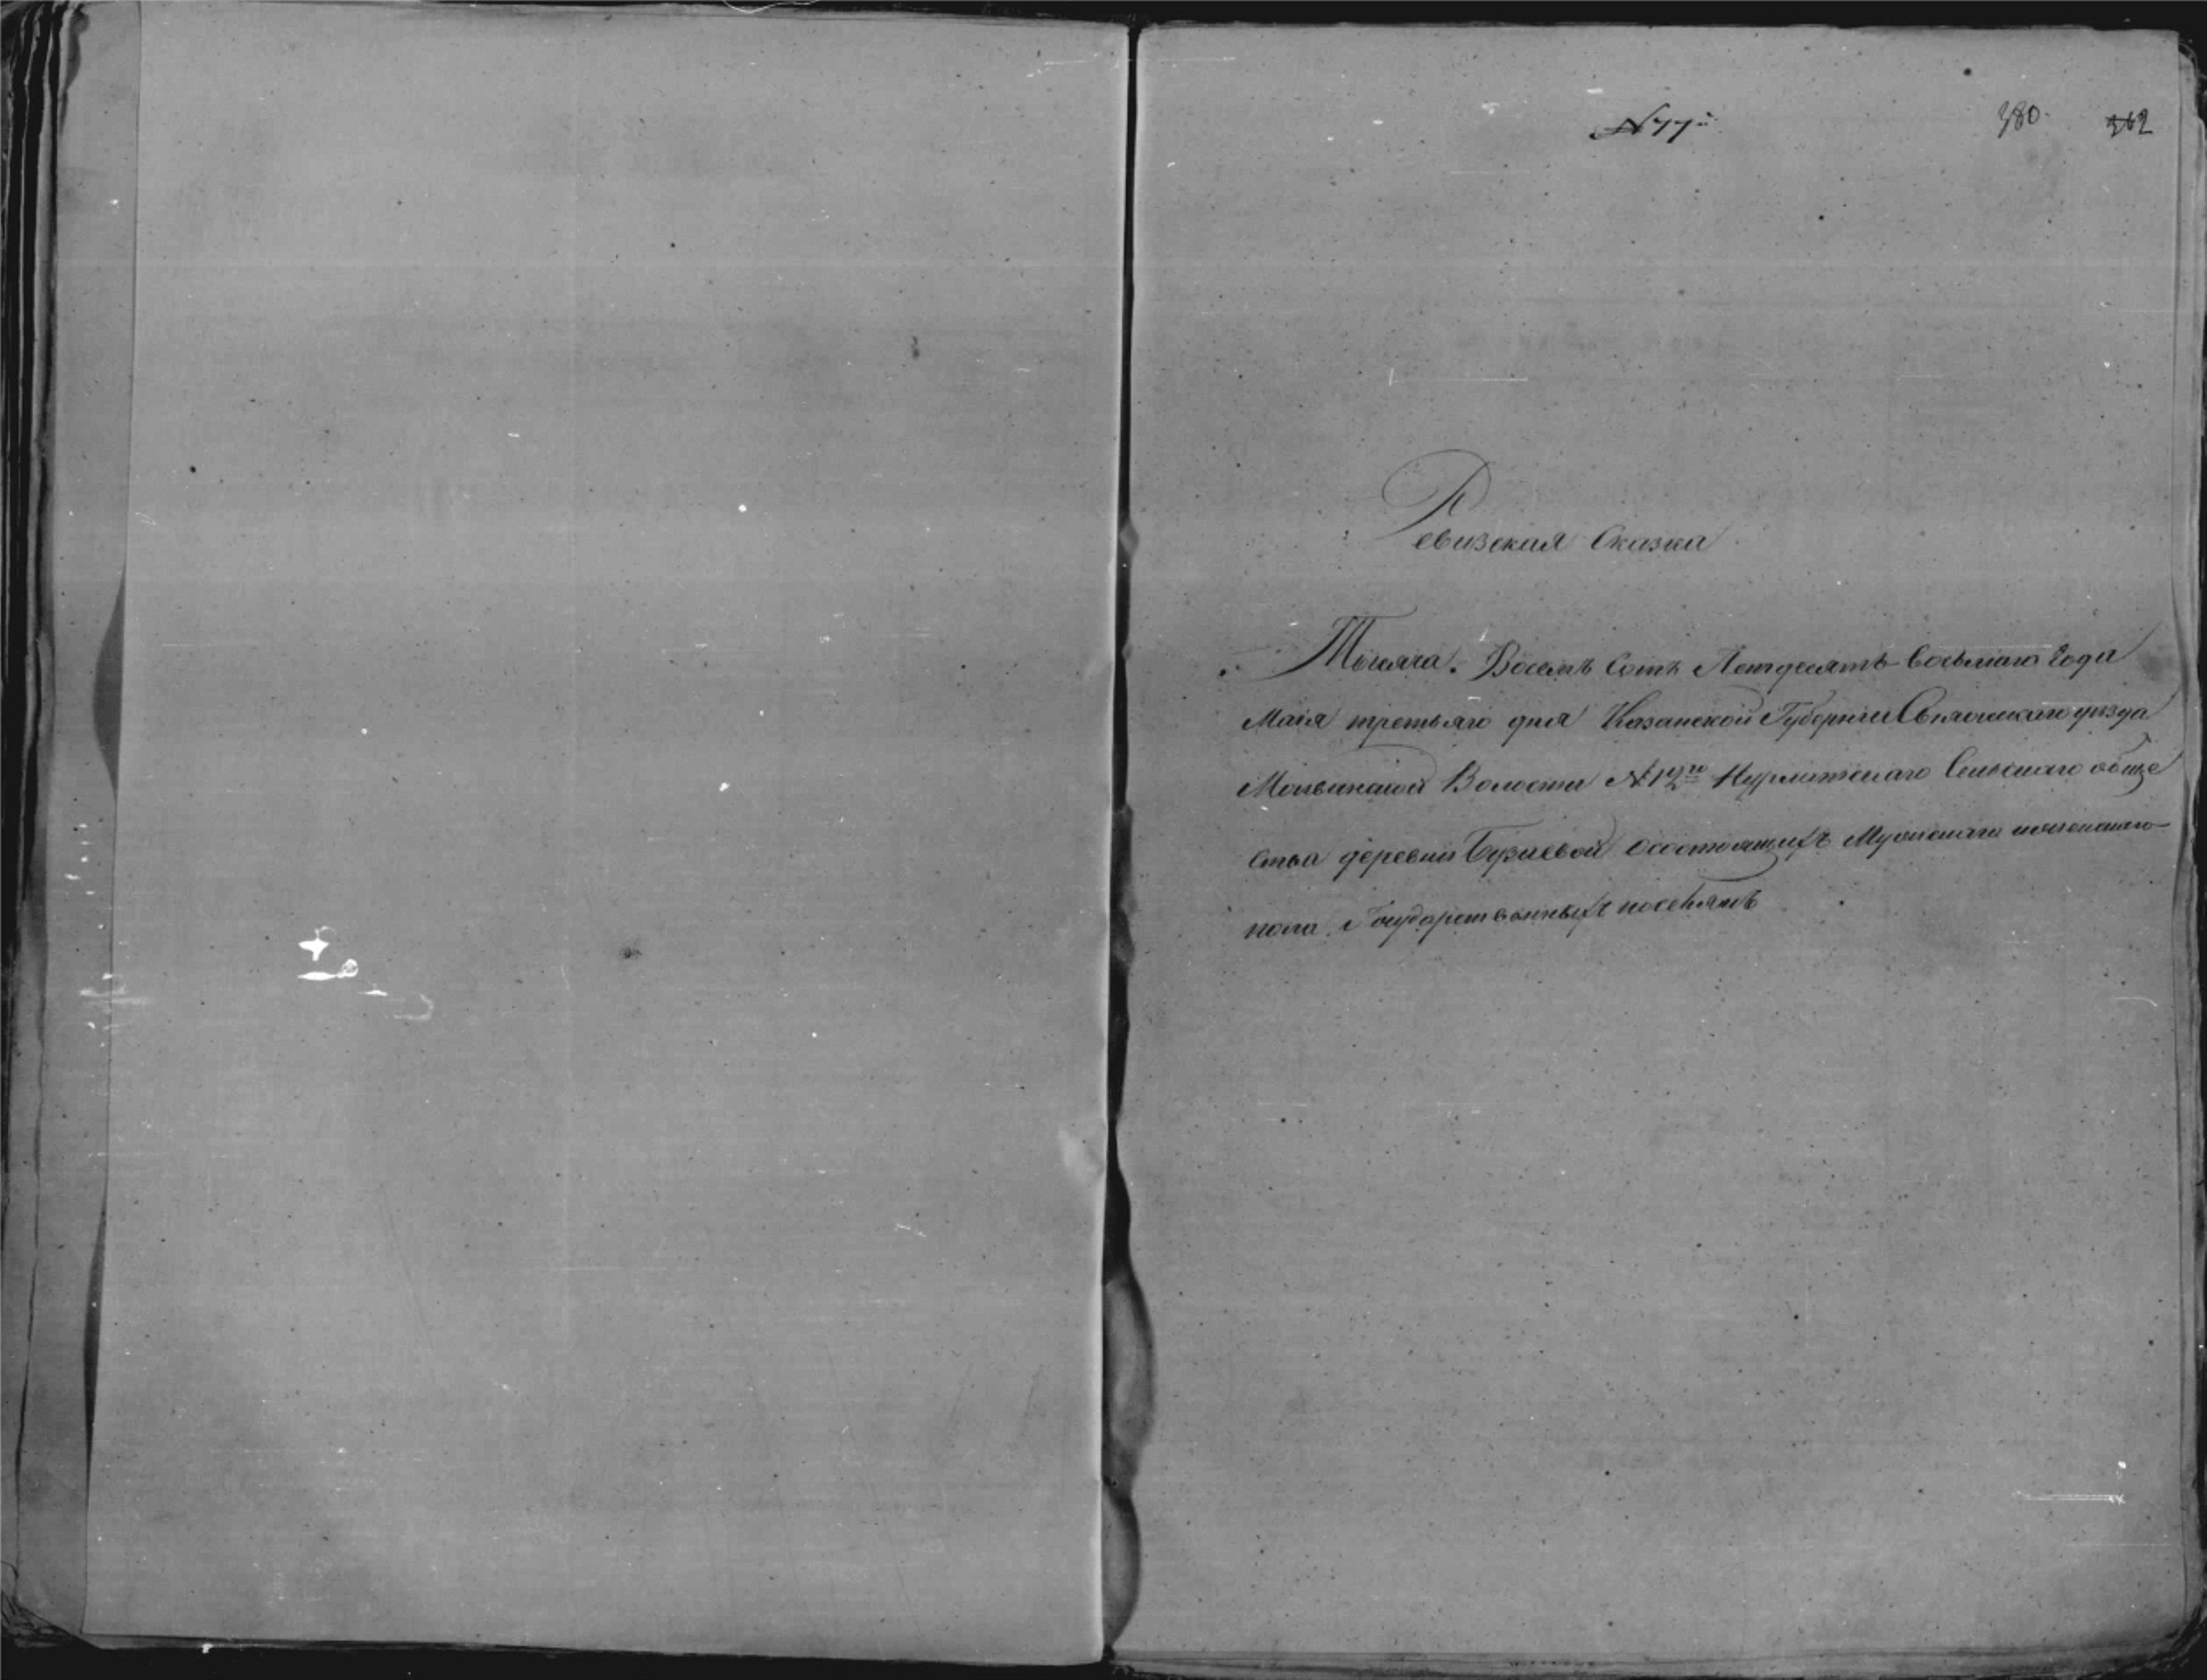 № 77й
380. 362
Ревизская Сказка
Тысяча Восемь Сотъ Пятдесятъ восьмаго Года
Маія третьяго дня Казанской Губерніи Свіяжскаго уѣзда
Молвинской Волости № 12го Нурлатскаго Сельскаго обще
ства деревни Бузаевой о состоящихъ Мужескаго и женскаго
пола Государственныхъ поселянъ